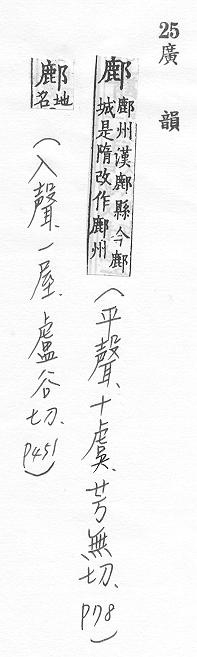 25廣韻
鄜
鄜州漢鄜縣今鄜
城是隋改作鄜州
(平聲、十虞、芳無切、p78)
鄜
地
名
(入聲、一屋、盧谷切、p451)